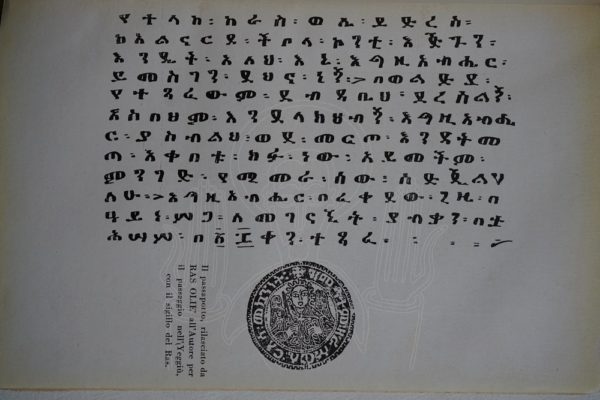 የተላከ፡ ከራስ፡ ወሌ፡ ይድረስ፡
ከአልናርዶ፡ ችቦላ፡ ኮንቲ፡ እጅጉን፡
እንዴት፡ አለህ፡ እኔ፡ እግዚአብሔር፡
ይመስገን፡ ደህና፡ ነኝ፡ በወልድያ፡
የተጻፈውም፡ ደብዳቤህ፡ ደረሰልኝ፡
እንደላክህብኝ፡ እግዚአብሔ
ር፡ ያስብልህ፡ ወደ፡ መርጦ፡ እንዳትመ
ጣ፡ እቀበቱ፡ ክፉ፡ ነው፡ አይመችም፡
ምንገድ፡ የሚመራ፡ ሰው፡ ሰድጄልሃ
ለሁ፡ እግዚአብሔር፡ በፈቀደው፡ ጊዜ፡ በ
ዓይነ፡ ሥጋ፡ ለመገናኘት፡ ያብቃን፡ በታ
ሕሣሥ፡ ቀን፡ ተጻፈ፡
Il passaporto, rilasciato da
RAS OLIE' all'Autore per
il passaggio nell'Yeggiù,
con il sigillo del Ras.